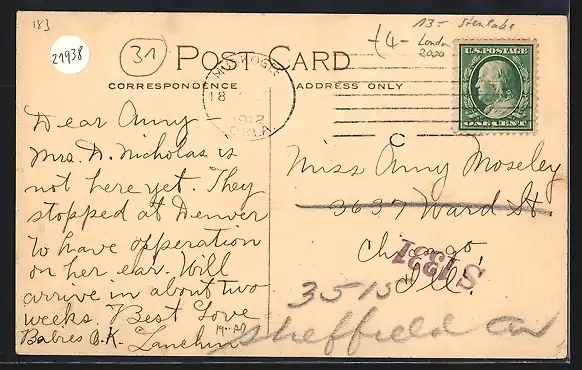 183
21938
31
13- Stenlake
-(4- London
2004
POST CARD
CORRESPONDENCE ADDRESS ONLY
MUSKOGEE
18
1912
OKLA.
U.S. POSTAGE
ONE CENT
C
Dear Amy -
Mrs. D. Nicholas is
not here yet. They
stopped at Denver
to have opperation
on her ear. Will
arrive in about two
weeks. Best Love
Babies O.K.
Miss Amy Moseley
3637 Ward St.
Chicago
Ill.
S 1331
3515
Sheffield av